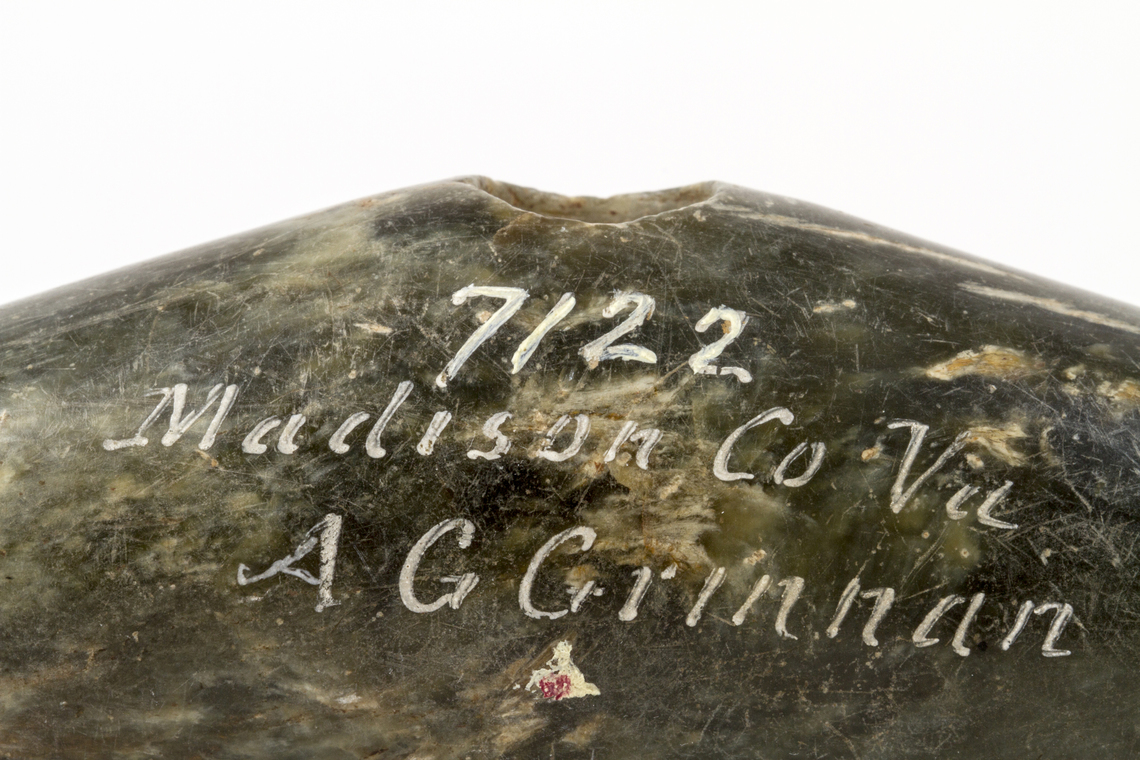 7122
Madison Co Va
A G Grinnan